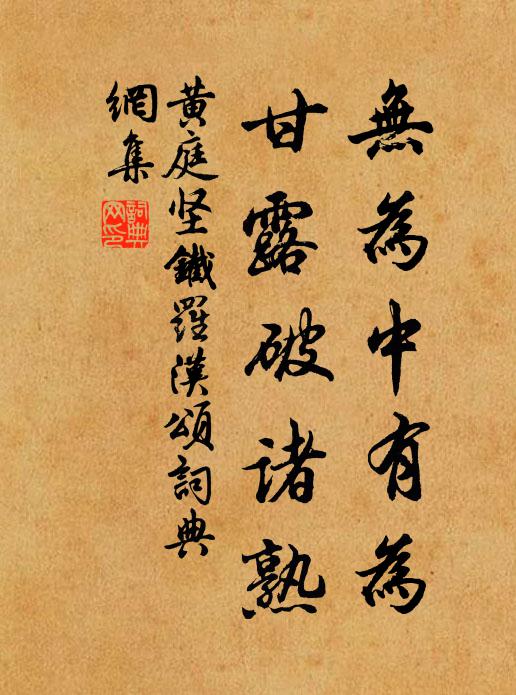 無為中有為
甘露破諸熟
黄庭坚鐵羅漢頌詞典
網集
詞典網印